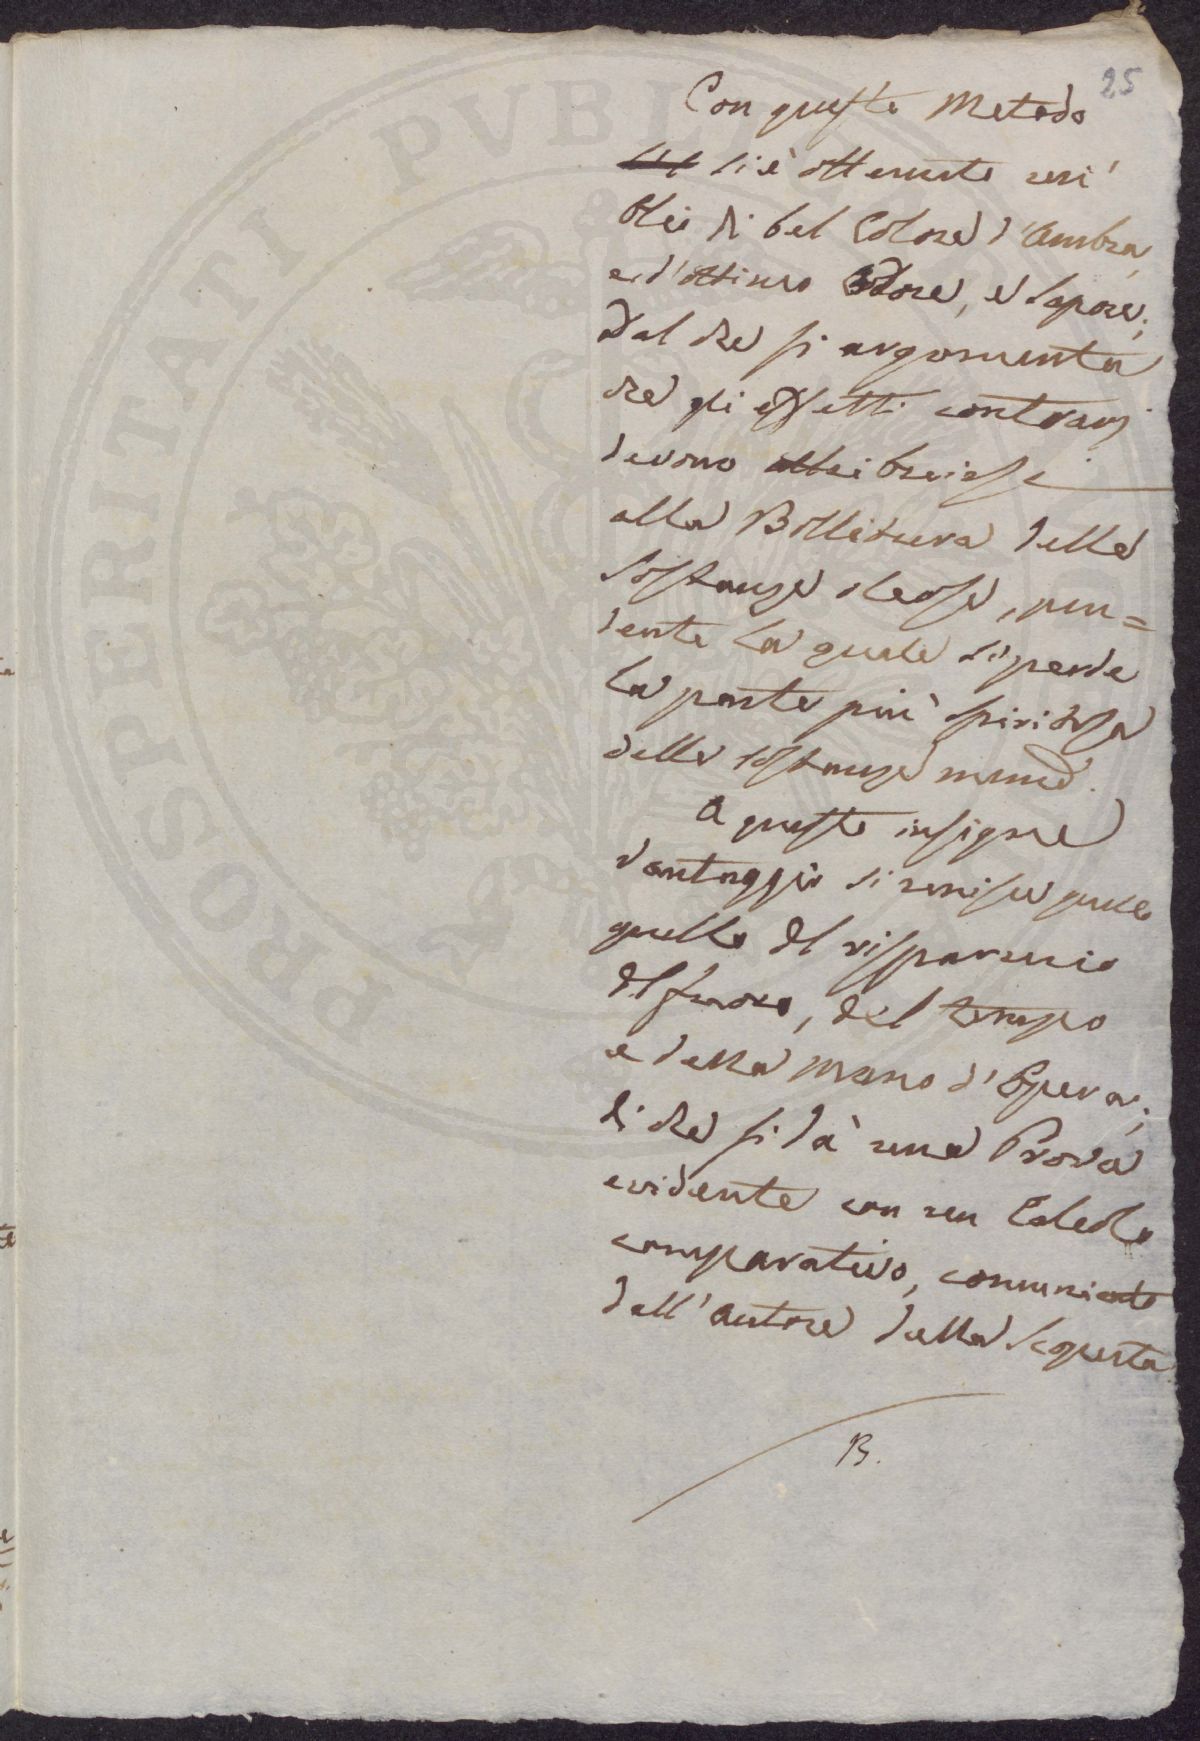 25
Con questo Metodo
si è ottenuto un'
Olio di bel Colore d'Ambra,
e d'ottimo Odore, e Sapore;
Dal che si argomenta
che gli effetti contrarj
devono attribuirsi
alla Bollitura delle
sostanze oleose, pen=
dente la quale si perde
la parte più spiritosa
delle sostanze
A questo insigne
vantaggio si unisce pure
quello del risparmio
del fuoco, del tempo
e della mano d'Opera;
di che si dà una Prova
evidente con un Calcolo
comparativo, comunicato
dall'Autore della Scoperta
B.
PROSPERITATI PVBLICAE